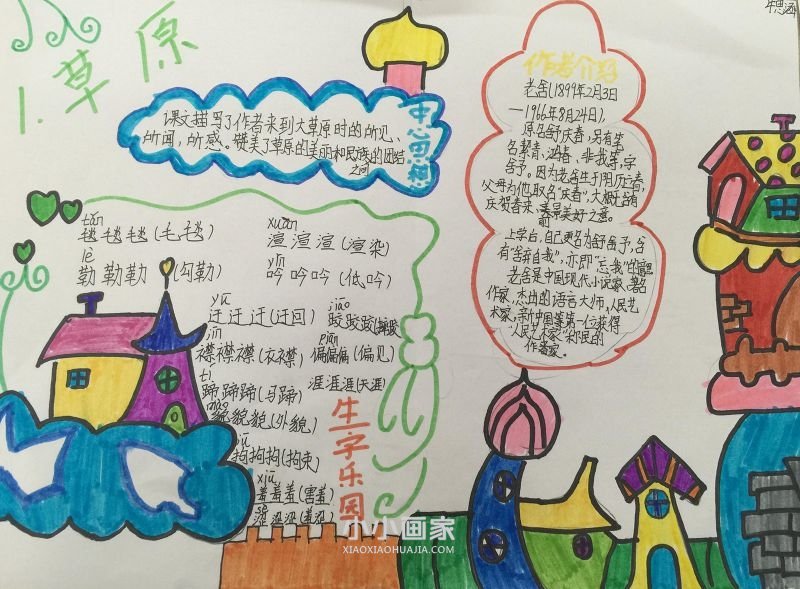 1.草原
中心思想
课文描写了作者来到大草原时的所见、
所闻,所感。赞美了草原的美丽和民族的团结
之间
tǎn
毯毯毯(毛毯)
xuàn
渲渲渲(渲染)
lè
勒勒勒(勾勒)
yín
吟吟吟(低吟)
yū
迂迂迂(迂回)
jiāo
jīn
襟襟襟(衣襟)
piān
偏偏偏(偏见)
tí
蹄蹄蹄(马蹄)
涯涯涯(天涯)
mào
貌貌貌(外貌)
jū
拘拘拘(拘束)
xiū
羞羞羞(害羞)
生字乐园
作者介绍
老舍(1899年2月3日
—1966年8月24日),
原名舒庆春,另有笔
名絜青、鸿来、非我等,字
舍予。因为老舍生于阴历立春,
父母为他取名“庆春”,大概含有
庆贺春来、前景美好之意。
上学后,自己更名为舒舍予,含
有“舍弃自我”,亦即“忘我”的意思
老舍是中国现代小说家、著名
作家,杰出的语言大师,人民艺
术家,新中国第一位获得
“人民艺术家”称号的
作家。
小小画家
XIAOXIAOHUAJIA.COM